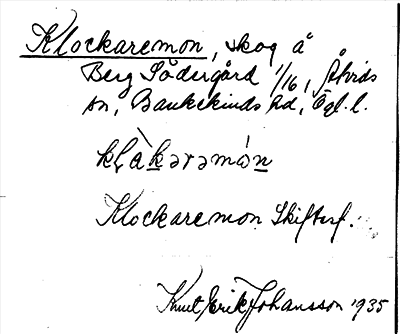 Klockaremon, skog å
Berg Södergård 1/16, Åtvids
sn, Bankekinds hd, Ögl. l.
Klockaremon Skiftesf.
Knut Erik Johansson 1935